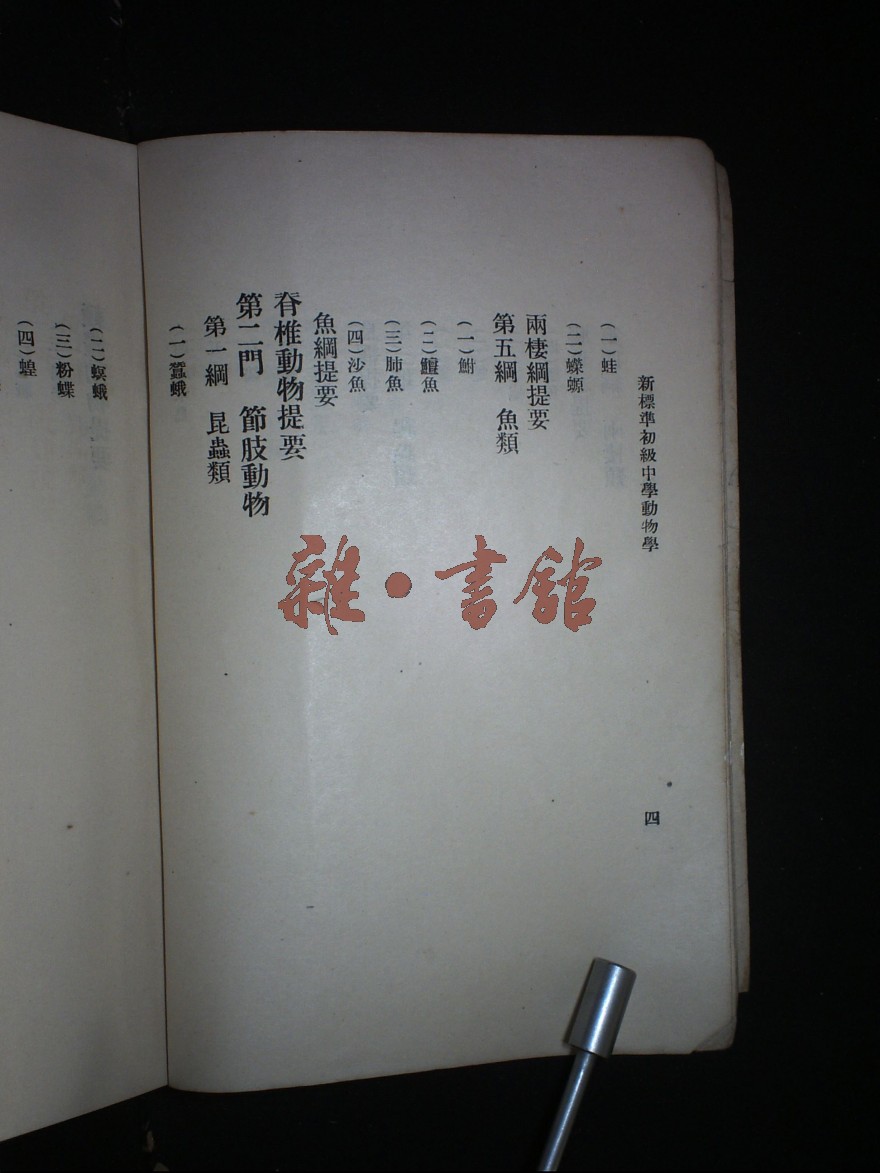 新標準初級中學動物學
四
(一)蛙
(二)蠑螈
兩棲綱提要
第五綱　魚類
(一)鮒
(二)鱣魚
(三)肺魚
(四)沙魚
魚綱提要
脊椎動物提要
第二門　節肢動物
第一綱　昆蟲類
(一)蠶蛾
(二)螟蛾
(三)粉蝶
(四)蝗
雜・書館